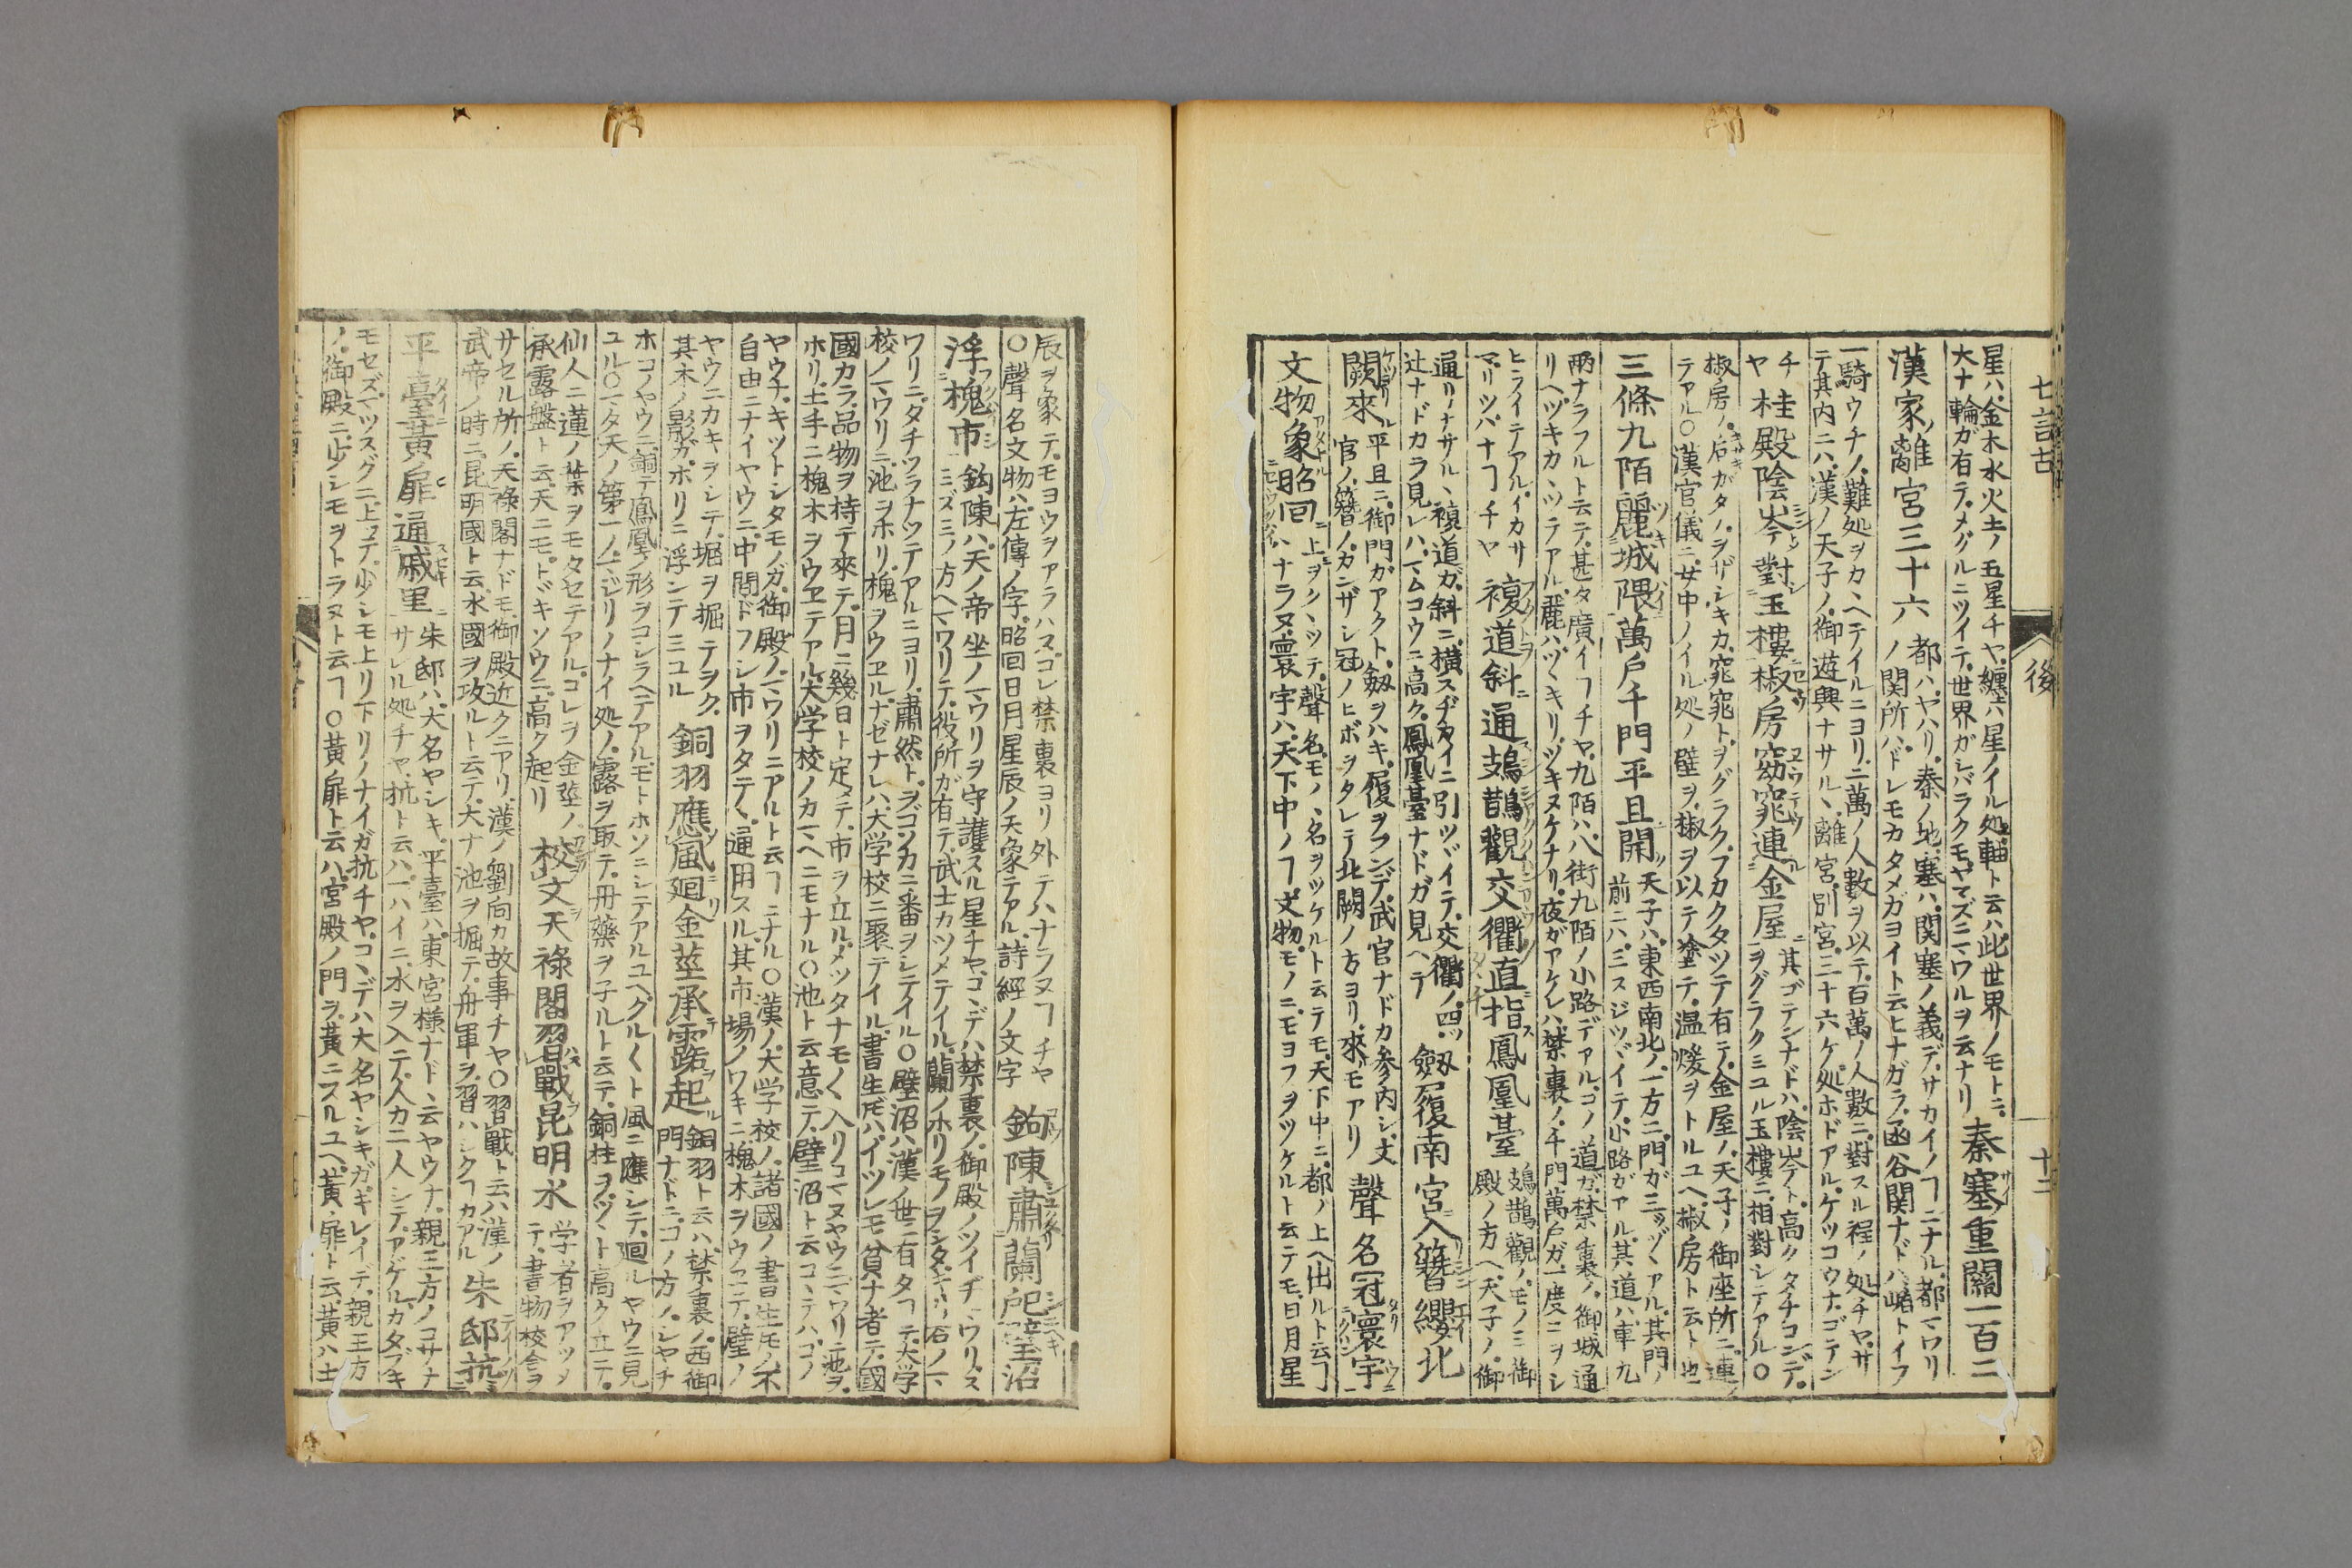 七言古
後
十二
星ハ金木水火土ノ五星チヤ纏ハ星ノイル処軸ト云ハ此世界ノモトニ
大ナ輪ガ有テメグルニツイテ世界ガシバラクモヤマズニマワルヲ云ナリ
秦塞重關一百二
漢家離宮三十六
都ハヤハリ秦ノ地塞ハ関塞ノ義デサカイノヿニナル都マワリ
ノ関所ハドレモカタメガヨイト云ヒナガラ函谷関ナドハ嶮トイフ
一騎ウチノ難処ヲカヽヘテイルニヨリ二萬ノ人數ヲ以テ百萬ノ人數ニ對スル程ノ処チヤサ
テ其内ニハ漢ノ天子ノ御遊興ナサルヽ離宮別宮三十六ケ処ホドアルケツコウナゴテン
チヤ
桂殿陰岑對玉樓椒房窈窕連金屋
其ゴテンナドハ陰岑ト高クタチコンデ
ヲグラクミユル玉樓ニ相對シテアル○
椒房ノ后ガタノヲザシキカ窕窕トヲグラクフカクタツテ有テ金屋ノ天子ノ御座所ニ連ツ
テアル○漢官儀ニ女中ノイル処ノ壁ヲ椒ヲ以テ塗テ温煖ヲトルユヘ椒房ト云ト也
三條九陌麗城隈萬戶千門平旦開
天子ハ東西南北ノ一方ニ門ガ三ツヅヽアル其門ノ
前ニハ三スジツヾイテ小路ガアル其道ハ車九
兩ナラフルト云テ甚タ廣イヿチヤ九陌ハ八街九陌ノ小路デアルゴノ道ガ禁裏ノ御城通
リヘツキカヽツテアル麗ハツヽキリツキヌケナリ夜ガアケレハ禁裏ノ千門萬戶ガ一度ニヲシ
ヒライテアルイカサ
マリツハナヿチヤ
複道斜通鳷鵲觀交衢直指鳳凰臺
鳷鵲觀ノモノミ御
殿ノ方ヘ天子ノ御
通リナサルヽ複道ガ斜ニ横スヂカイニ引ツヾイテ交衢ノ四ツ
辻ナドカラ見レハマムコウニ高ク鳳凰臺ナドガ見ヘテ
劒履南宮入簪纓北
闕來
平旦ニ御門ガアクト劔ヲハキ履ヲフンデ武官ナドカ參内シ文
官ノ簪ノカンザシ冠ノヒボヲタレテ北闕ノ方ヨリ來モアリ
聲名冠寰宇
文物象昭回
上ヲクヽツテ聲名モノヽ名ヲツケルト云テモ天下中ニ都ノ上ヘ出ルト云ヿ
ハナラヌ寰宇ハ天下中ノヿ文物モノニモヨフヲツケルト云テモ日月星
辰ヲ象テモヨウヲアラハスゴレ禁裏ヨリ外テハナラヌヿチヤ
○聲名文物ハ左傳ノ字昭回日月星辰ノ天象テアル詩經ノ文字
鉤陳肅蘭戺璧沼
浮槐市
鈎陳ハ天ノ帝坐ノマワリヲ守護スル星チヤコヽデハ禁裏ノ御殿ノツイヂマワリス
ミズミノ方ヘマワリテ役所ガ有テ武士カツメテイル
ワリニタチツラナツテアルニヨリ肅然トヲゴソカニ番ヲシテイル○壁沼ハ漢ノ世ニ有タヿテ大学
校ノマワリニ池ヲホリ槐ヲウヱルナゼナレハ大学校ニ聚テイル書生𪜈ハイツレモ貧ナ者テ國
國カラ品物ヲ持テ來テ月ニ幾日ト定メテ市ヲ立ルメツタナモノ入リコマヌヤウニマワリニ池ヲ
ホリ土手ニ槐木ヲウヱテアル大学校ノカマヘニモナル○池ト云意テ璧沼ト云コヽテハゴノ
ヤウチキツトシタモノガ御殿ノマワリニアルト云ヿニナル○漢ノ大学校ノ諸國ノ書生𪜈ノ不
自由ニナイヤウニ中間ドフシ市ヲタテヽ通用スル其市場ノワキニ槐木ヲウヱテ璧ノ
ヤウニカキヲシテ堀ヲ掘テヲク
其木ノ影ガホリニ浮ンテミユル
銅羽應風廻金莖承露起
銅羽ト云ハ禁裏ノ西御
門ナドニゴノ方ノシヤチ
ホコノヤウニ銅テ鳳凰ノ形ヲコシラヘテアルモトホソニシテアルユヘクル〱ト風ニ應シテ廻ルヤウニ見
ユル○マタ天ノ第一ノマジリノナイ処ノ露ヲ取テ丹藥ヲ子ルト云テ銅柱ヲヅント高ク立テ
仙人ニ蓮ノ葉ヲモタセテアルゴレヲ金莖ノ
承露盤ト云天ニモトドキソウニ高ク起リ
校文天祿閣習戰昆明水
学者ヲアツメ
テ書物校合ヲ
サセル所ノ天祿閣ナドモ御殿近クニアリ漢ノ劉向カ故事チヤ○習戰ト云ハ漢ノ
武帝ノ時ニ昆明國ト云水國ヲ攻ルト云テ大ナ池ヲ掘テ舟軍ヲ習ハシクヿカアル
朱邸抗
平臺黄扉通戚里
朱邸ハ大名ヤシキ平臺ハ東宮様ナドヽ云ヤウナ親王方ノコサナ
サレル処チヤ抗ト云ハ一ハイニ水ヲ入テ人カ二人シテアゲルカタブキ
モセズマツスグニ上ツテ少シモ上リ下リノナイガ抗チヤコヽデハ大名ヤシキガギレイデ親王方
ノ御殿ニ少シモヲトラヌト云ヿ○黄扉ト云ハ宮殿ノ門ヲ黄ニスルユヘ黄扉ト云黄ハ土